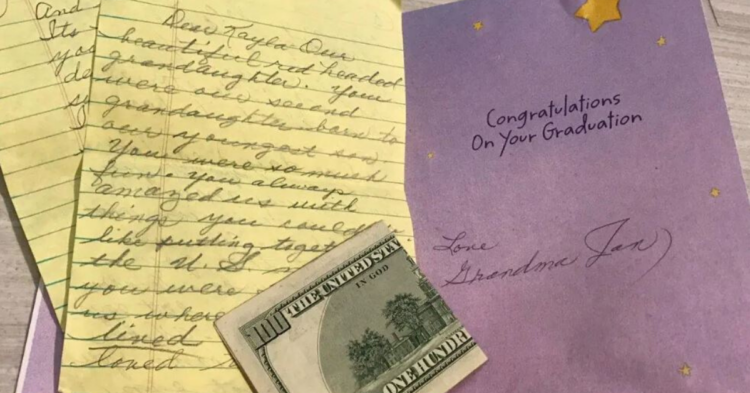 And
Its
you
Dear Kayla Our
beautiful red headed
grandaughter. You
were our second
grandaughter born to
our youngest son
You were so much
fun. You always
amazed us with
things you could
like putting
the U.S
you were
us where
lived
loved
100
THE UNITED STA
IN GOD
ONE HUNDR
Congratulations
On Your Graduation
Love
Grandma Jan